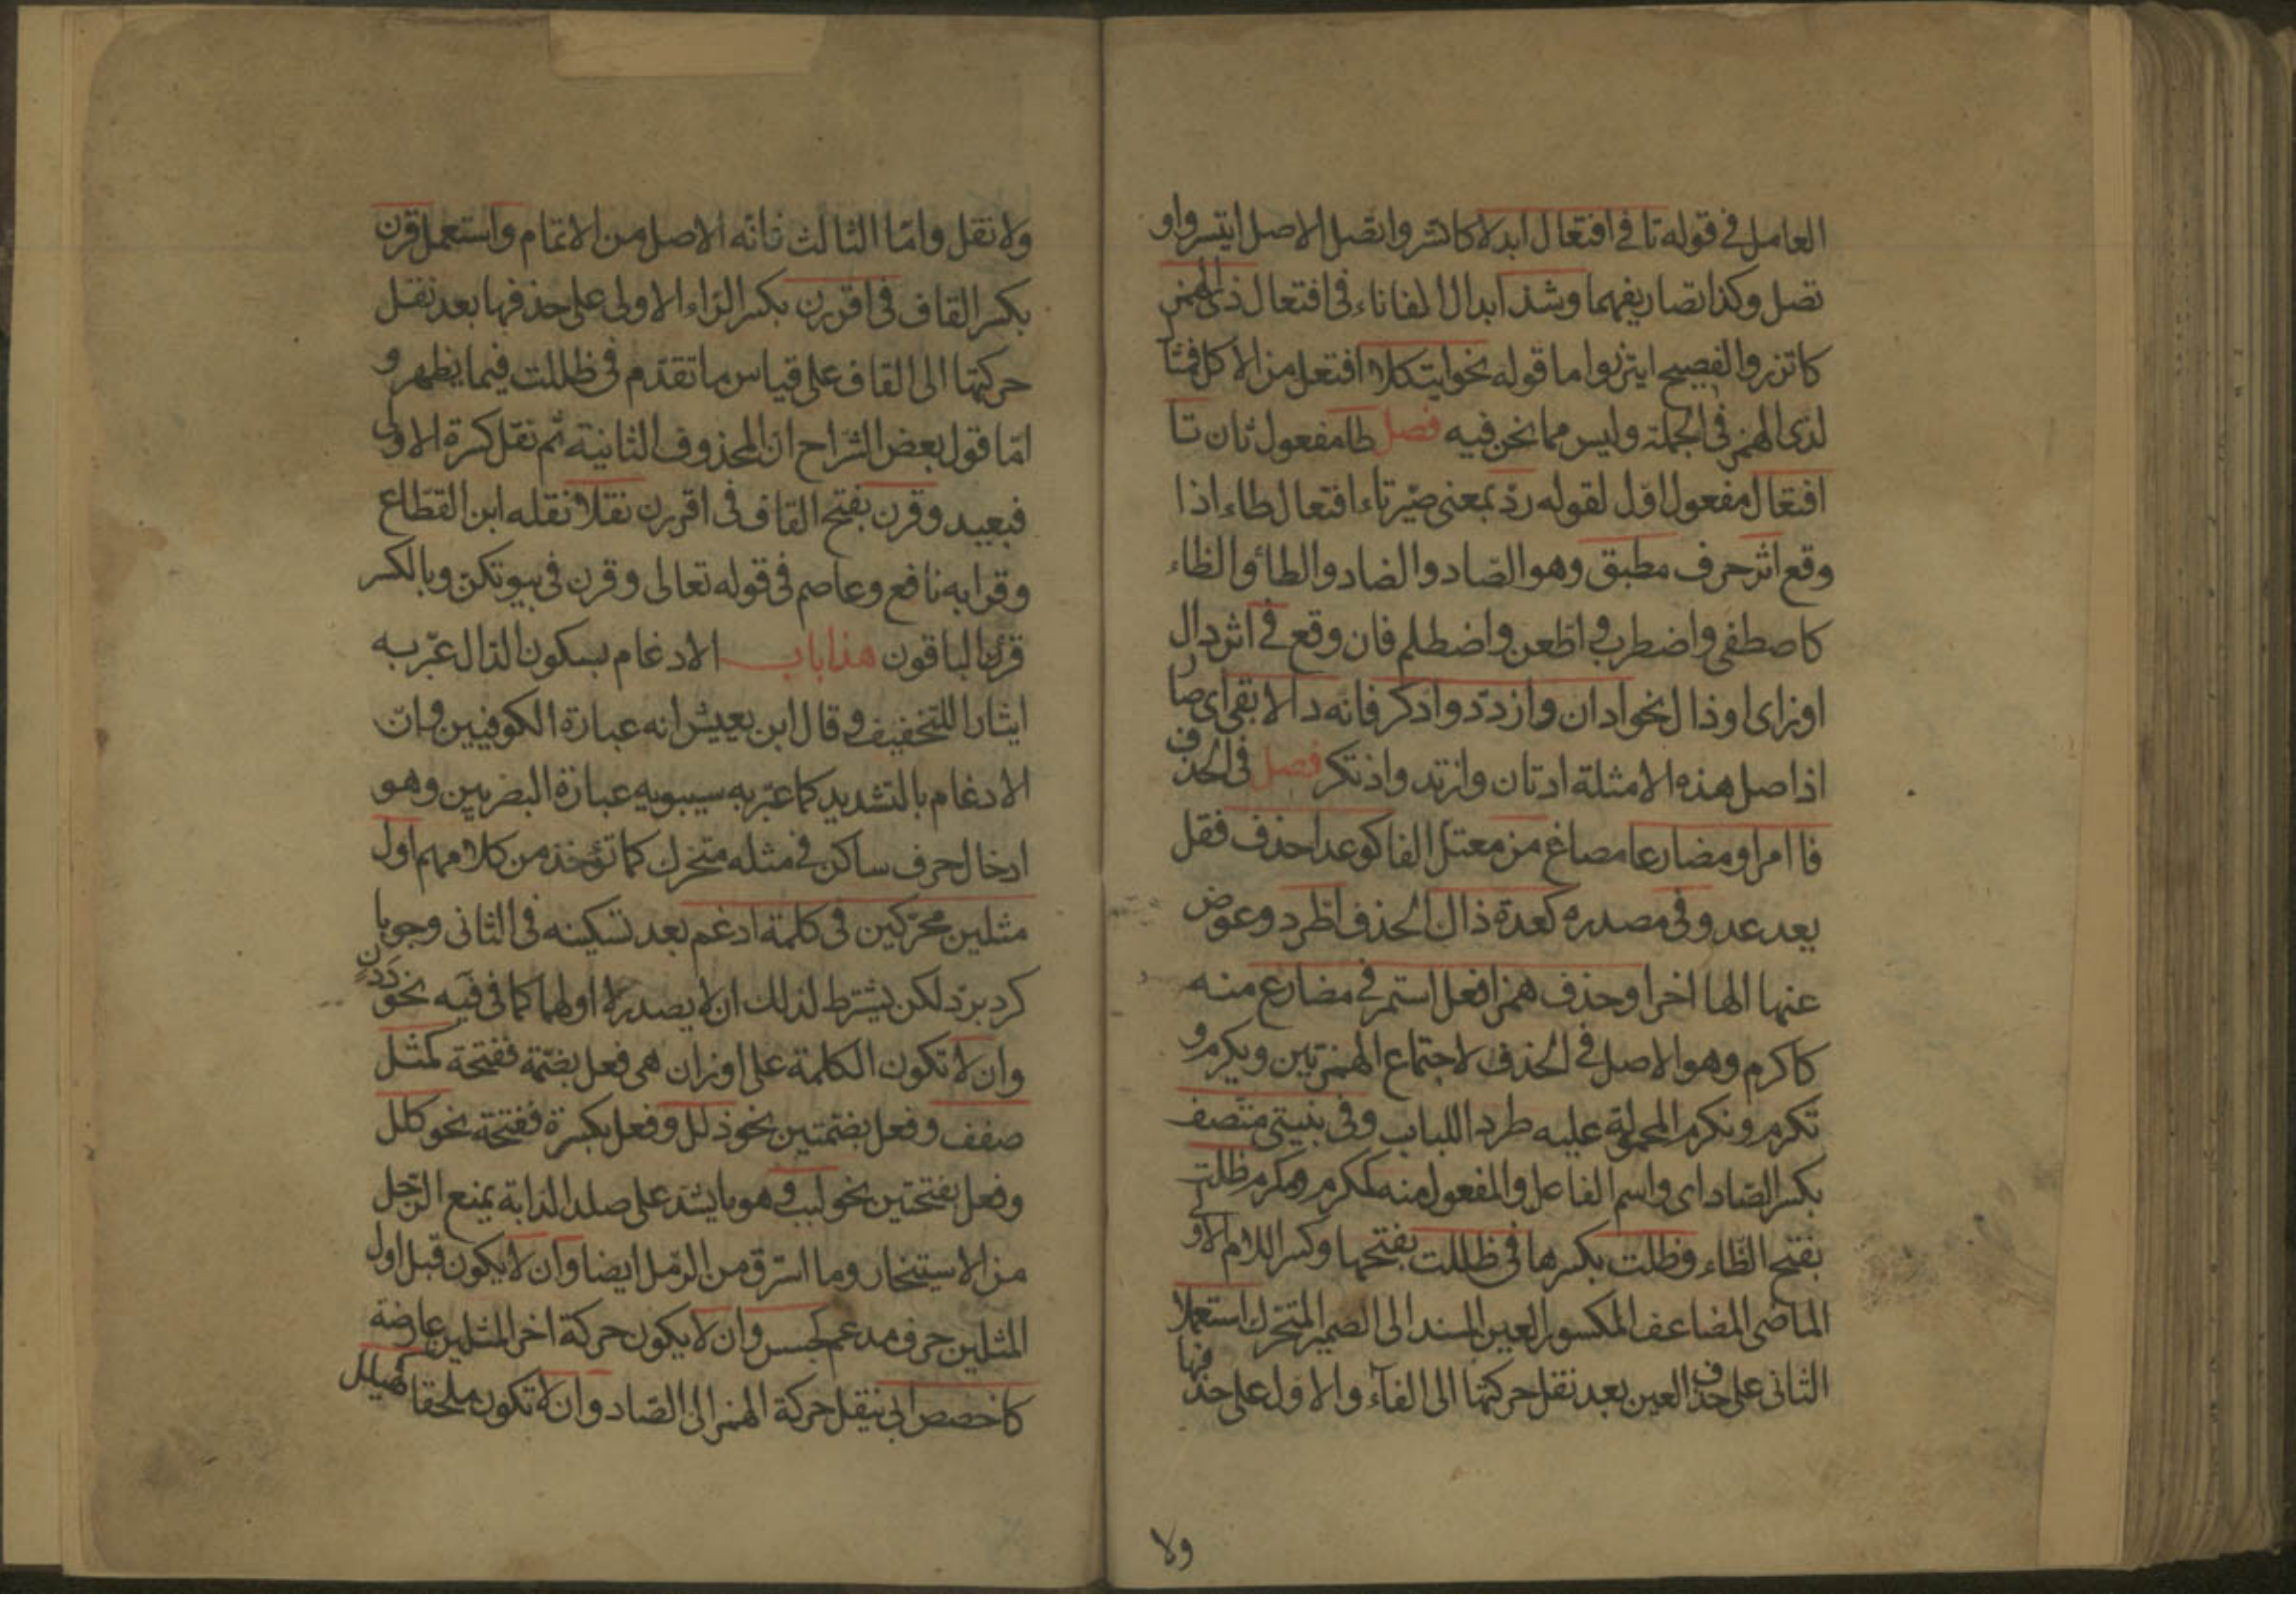 العامل في قوله تا في افتعال ابدلا كاتسر واتصل الاصل ايتسر واو
تصل وكذا تصاريفهما وشذ ابدال الفا تاء في افتعال ذي الهمز
كاتزر والفصيح ايتزر واما قوله نحو ايتكلا افتعل من الاكل فمثا
لذي الهمز في الجملة وليس مما نحن فيه فصل طا مفعول ثان تا
افتعال مفعول اول لقوله رد بمعنى صير تاء افتعال طاء اذا
وقع اثر حرف مطبق وهو الصاد والضاد والطاء والظاء
كاصطفى واضطرب واظعن واضطلم فان وقع في اثر دال
او زاى او ذال نحو ادان وازدد وادكر فانه دالا بقى اى صار
اذ اصل هذه الامثلة ادتان وازتد واذتكر فصل في الحذف
فا امر او مضارع مصاغ من معتل الفا كوعد احذف فقل
يعد عد وفي مصدره كعدة ذاك الحذف اطرد وعوض
عنها الها اخرا وحذف همز افعل استمر في مضارع منه
كاكرم وهو الاصل في الحذف لاجتماع الهمزتين ويكرم و
تكرم ونكرم المحمولة عليه طرد اللباب وفي بنيتي متصف
بكسر الصاد اى واسم الفاعل والمفعول منه كمكرم ومكرم ظلت
بفتح الظاء وظلت بكسرها في ظللت بفتحها وكسر اللام الاولى
الماضي المضاعف المكسور العين المسند الى الضمير المتحرك استعملا
الثاني على حذف العين بعد نقل حركتها الى الفاء والاول على حذفها
ولا
ولا نقل واما الثالث فانه الاصل من الاتمام واستعمل قرن
بكسر القاف في اقررن بكسر الراء الاولى على حذفها بعد نقل
حركتها الى القاف على قياس ما تقدم في ظللت فيما يظهر و
اما قول بعض الشراح ان المحذوف الثانية ثم نقل كسرة الاولى
فبعيد وقرن بفتح القاف في اقررن نقلا نقله ابن القطاع
وقرا به نافع وعاصم في قوله تعالى وقرن في بيوتكن وبالكسر
قرأ الباقون هذا باب الادغام بسكون الدال عبر به
ايثارا للتخفيف وقال ابن يعيش انه عبارة الكوفيين وان
الادغام بالتشديد كما عبر به سيبويه عبارة البصريين وهو
ادخال حرف ساكن في مثله متحرك كما تؤخذ من كلامهم اول
مثلين محركين في كلمة ادغم بعد تسكينه في الثاني وجوبا
كرد برد لكن يشترط لذلك ان لا يصدر اولهما كما في فيه نحو ددن
وان لا تكون الكلمة على اوزان هي فعل بضمة ففتحة كمثل
صفف وفعل بضمتين نحو ذلل وفعل بكسرة ففتحة نحو كلل
وفعل بفتحتين نحو لبب وهو ما يشد على صلد الدابة يمنع الرحل
من الاستيخار وما استرق من الرمل ايضا وان لا يكون قبل اول
المثلين حرف مدغم كجسس وان لا يكون حركة اخر المثلين عارضة
كاخصص ابي بنقل حركة الهمز الى الصاد وان لا تكون ملحقا كهيلل